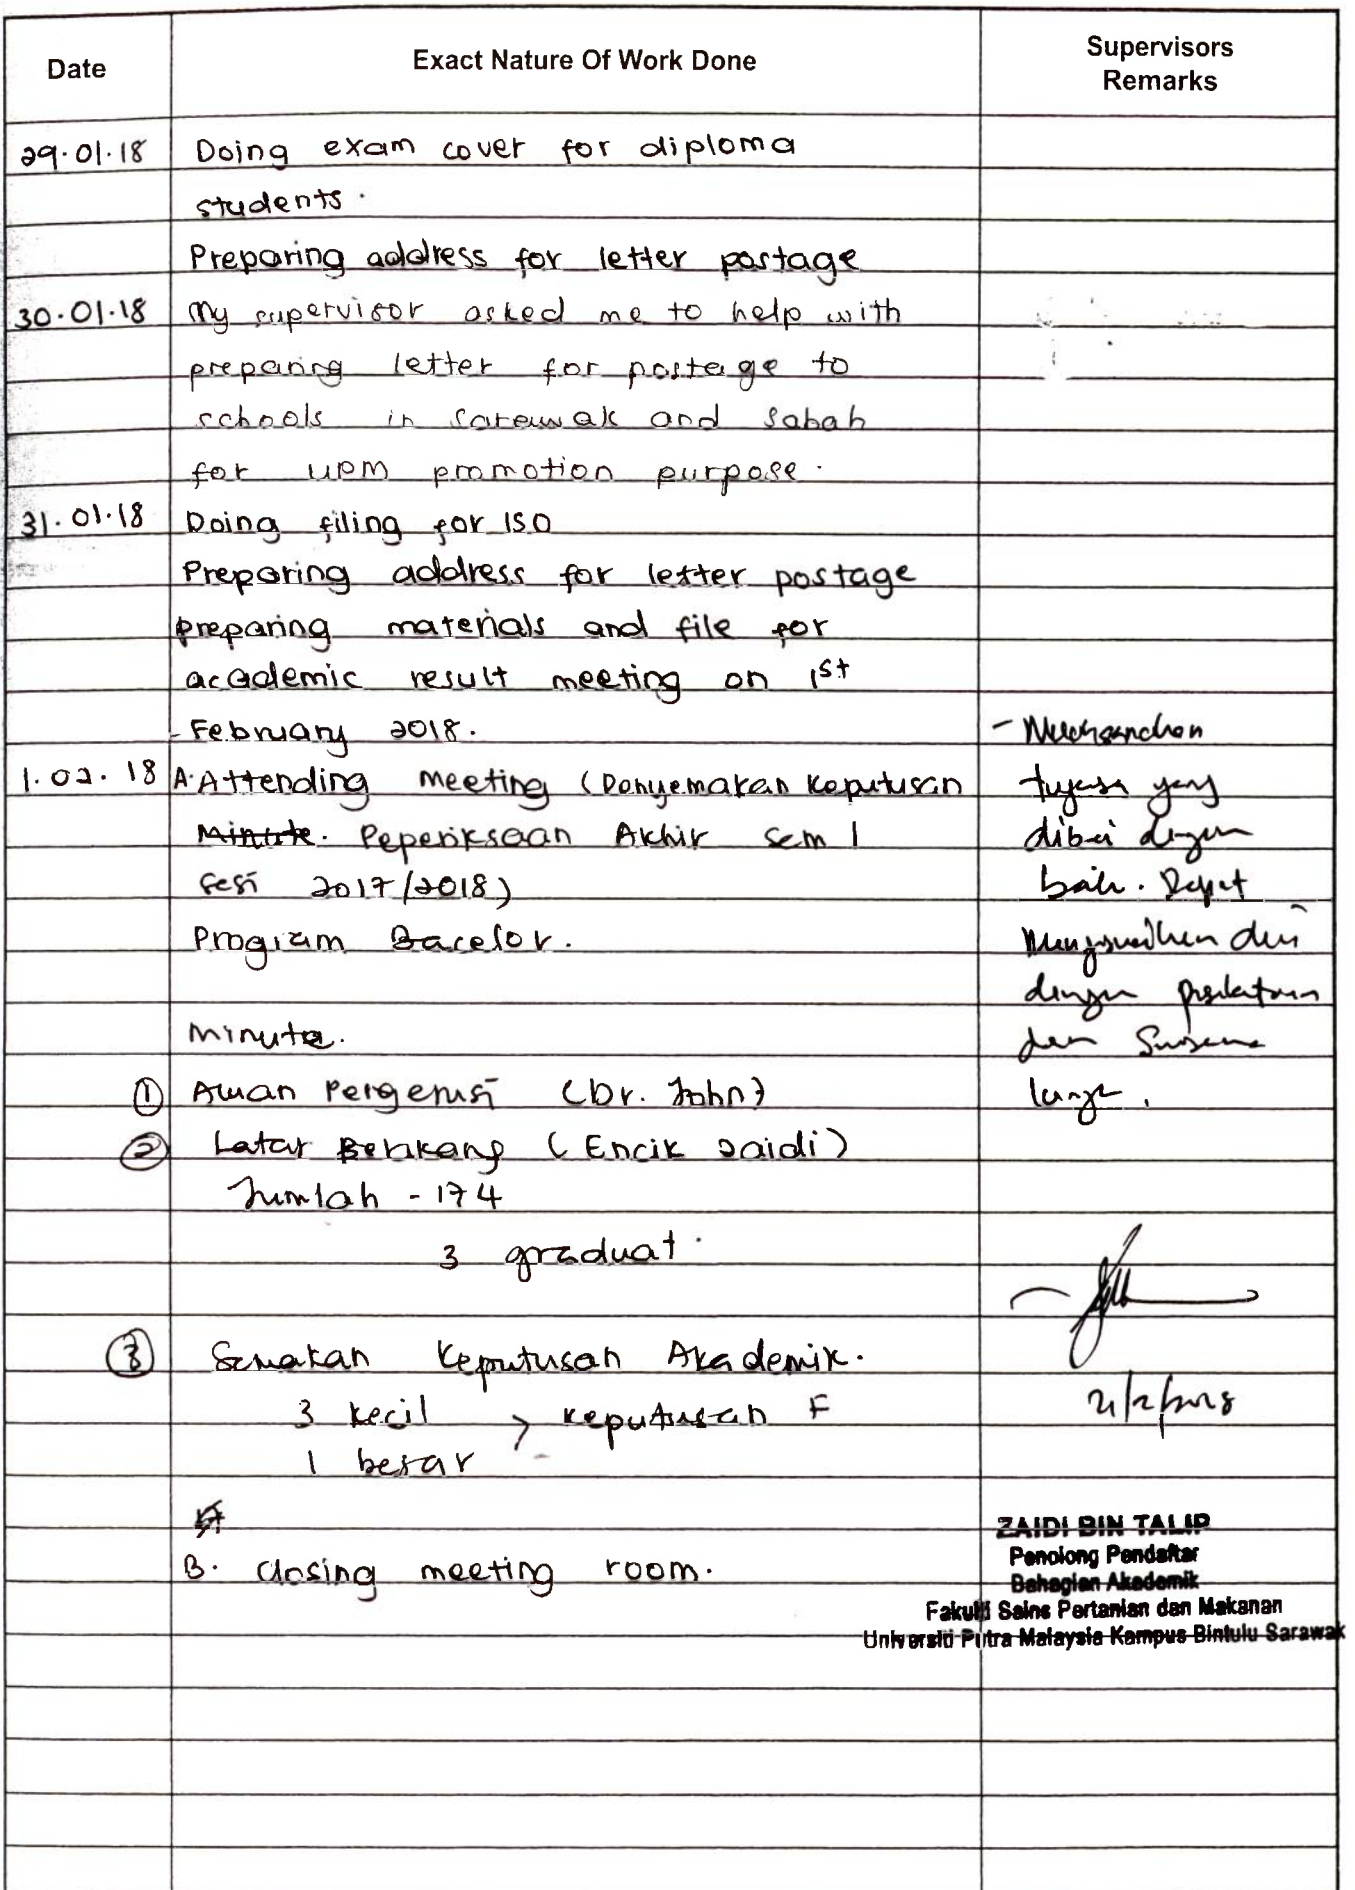 Date
Exact Nature Of Work Done
Supervisors
Remarks
29.01.18 Doing exam cover for diploma
students.
Preparing address for letter postage
30.01.18 My supervisor asked me to help with
preparing letter for postage to
schools in Sarawak and Sabah
for UPM promotion purpose.
31.01.18 Doing filing for ISO
Preparing address for letter postage
preparing materials and file for
academic result meeting on 1st
February 2018.
1.02.18 A. Attending meeting (Penyemakan Keputusan
Minute. Peperiksaan Akhir sem 1
sesi 2017/2018)
Program Bacelor.
minute.
① Aluan Pengerusi (Dr. John)
② Latar Belakang (Encik Zaidi)
Jumlah - 174
3 graduat.
③ Semakan Keputusan Akademik.
3 kecil > keputusan F
1 besar
B. closing meeting room.
tugasan yang
diberi dengan
baik. Dapat
dengan
dan
ZAIDI BIN TALIP
Penolong Pendaftar
Bahagian Akademik
Fakulti Sains Pertanian dan Makanan
Universiti Putra Malaysia Kampus Bintulu Sarawak